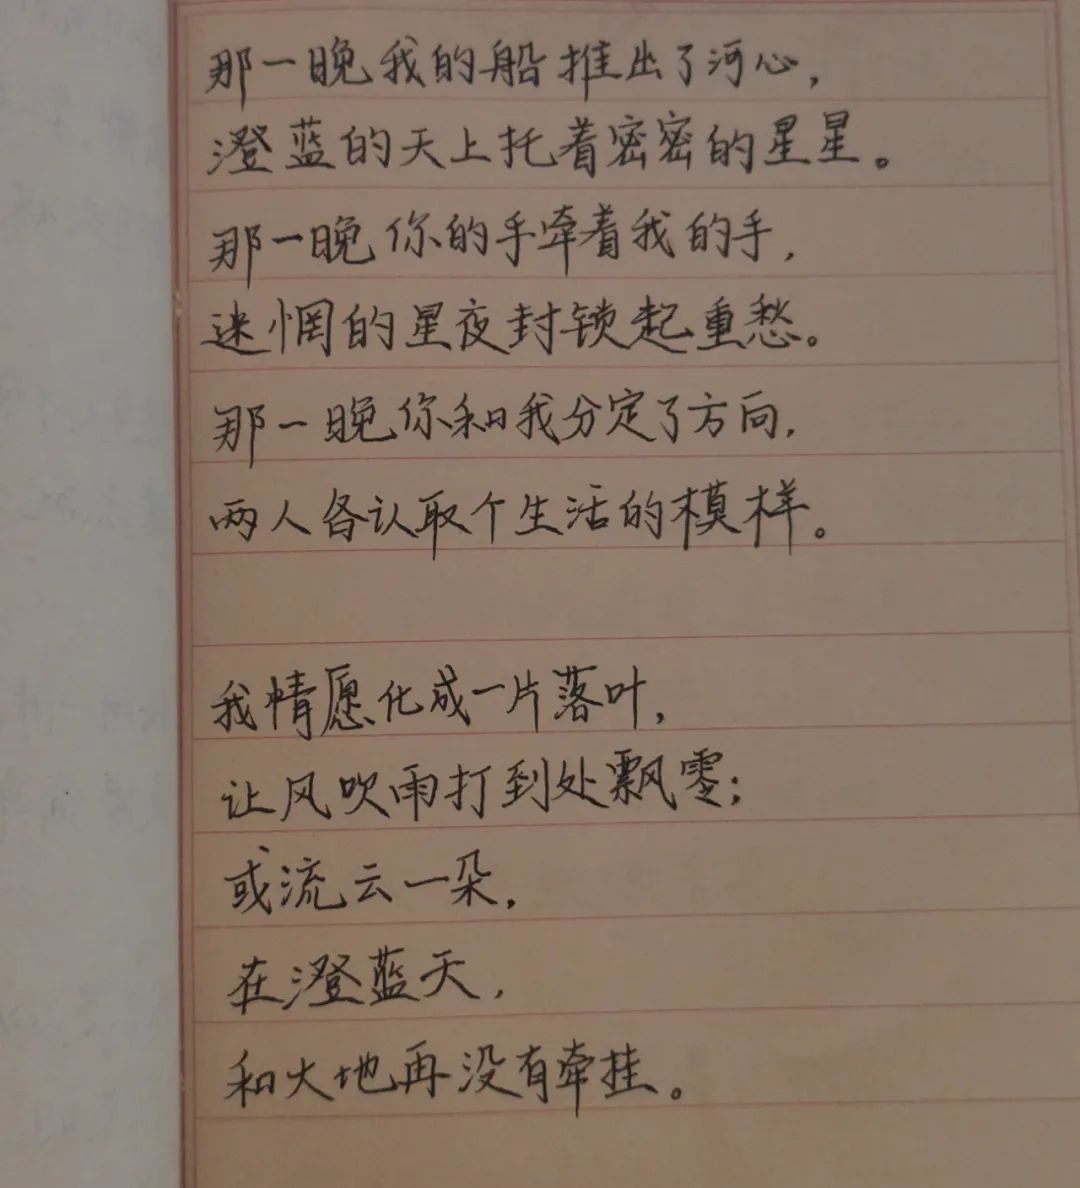 那一晚我的船推出了河心，
澄蓝的天上托着密密的星星。
那一晚你的手牵着我的手，
迷惘的星夜封锁起重愁。
那一晚你和我分定了方向，
两人各认取个生活的模样。
我情愿化成一片落叶，
让风吹雨打到处飘零；
或流云一朵，
在澄蓝天，
和大地再没有牵挂。